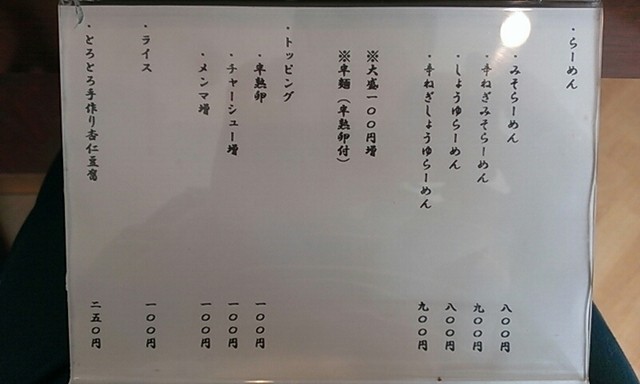 ・らーめん
・みそらーめん 八〇〇円
・辛ねぎみそらーめん 九〇〇円
・しょうゆらーめん 八〇〇円
・辛ねぎしょうゆらーめん 九〇〇円
※大盛一〇〇円増
※卑麺(卑熟卵付)
・トッピング
・卑熟卵 一〇〇円
・チャーシュー増 一〇〇円
・メンマ増 一〇〇円
・ライス 一〇〇円
・とろとろ手作り杏仁豆腐 二五〇円